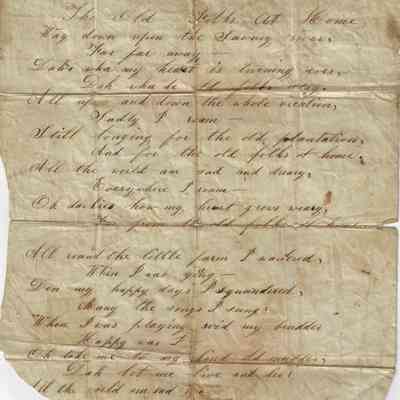 The Old Folks At Home
Way down upon the Swaney river,
Far far away—
Dah's wha my heart is turning ever,
Dah wha de old folks stay.
All up and down the whole creation,
Sadly I roam—
Still longing for the old plantation,
And for the old folks at home.
All the world am sad and dreary,
Everywhere I roam—
Oh darkies how my heart grows weary,
Far from the old folks at home
All round the little farm I wandered,
When I was young—
Den my happy days I squandered,
Many the songs I sung.
When I was playing wid my brudder
Happy was I
Oh take me to my kind old mudder,
Dah let me live and die!
All the world am sad